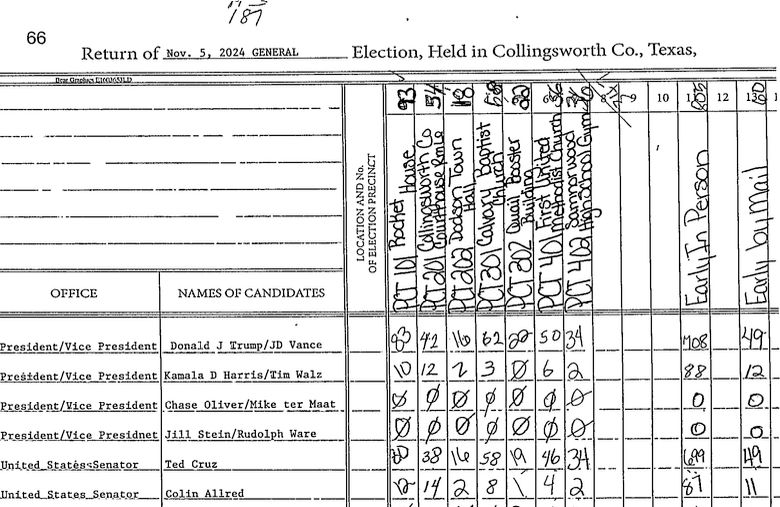 187
66
Return of Nov. 5, 2024 GENERAL Election, Held in Collingsworth Co., Texas,
LOCATION AND No. OF ELECTION PRECINCT
93 54 18 22 9 10 60
PCT 101 Rocket House
PCT 201 Collingsworth Co Courthouse
PCT 202 Dodson Town Hall
PCT 301 Calvary Baptist Church
PCT 302 Quail Booster Building
PCT 401 First United Methodist Church
PCT 402 Samnorwood High School Gym
Early In Person
Early by Mail
OFFICE NAMES OF CANDIDATES
President/Vice President Donald J Trump/JD Vance 83 42 16 62 22 50 34 708 49
President/Vice President Kamala D Harris/Tim Walz 10 12 2 3 Ø 6 2 88 12
President/Vice President Chase Oliver/Mike ter Maat Ø Ø Ø Ø Ø Ø Ø 0 0
President/Vice Presidnet Jill Stein/Rudolph Ware Ø Ø Ø Ø Ø Ø Ø 0 0
United States Senator Ted Cruz 80 38 16 58 19 46 34 699 49
United States Senator Colin Allred 12 14 2 8 1 4 2 87 11